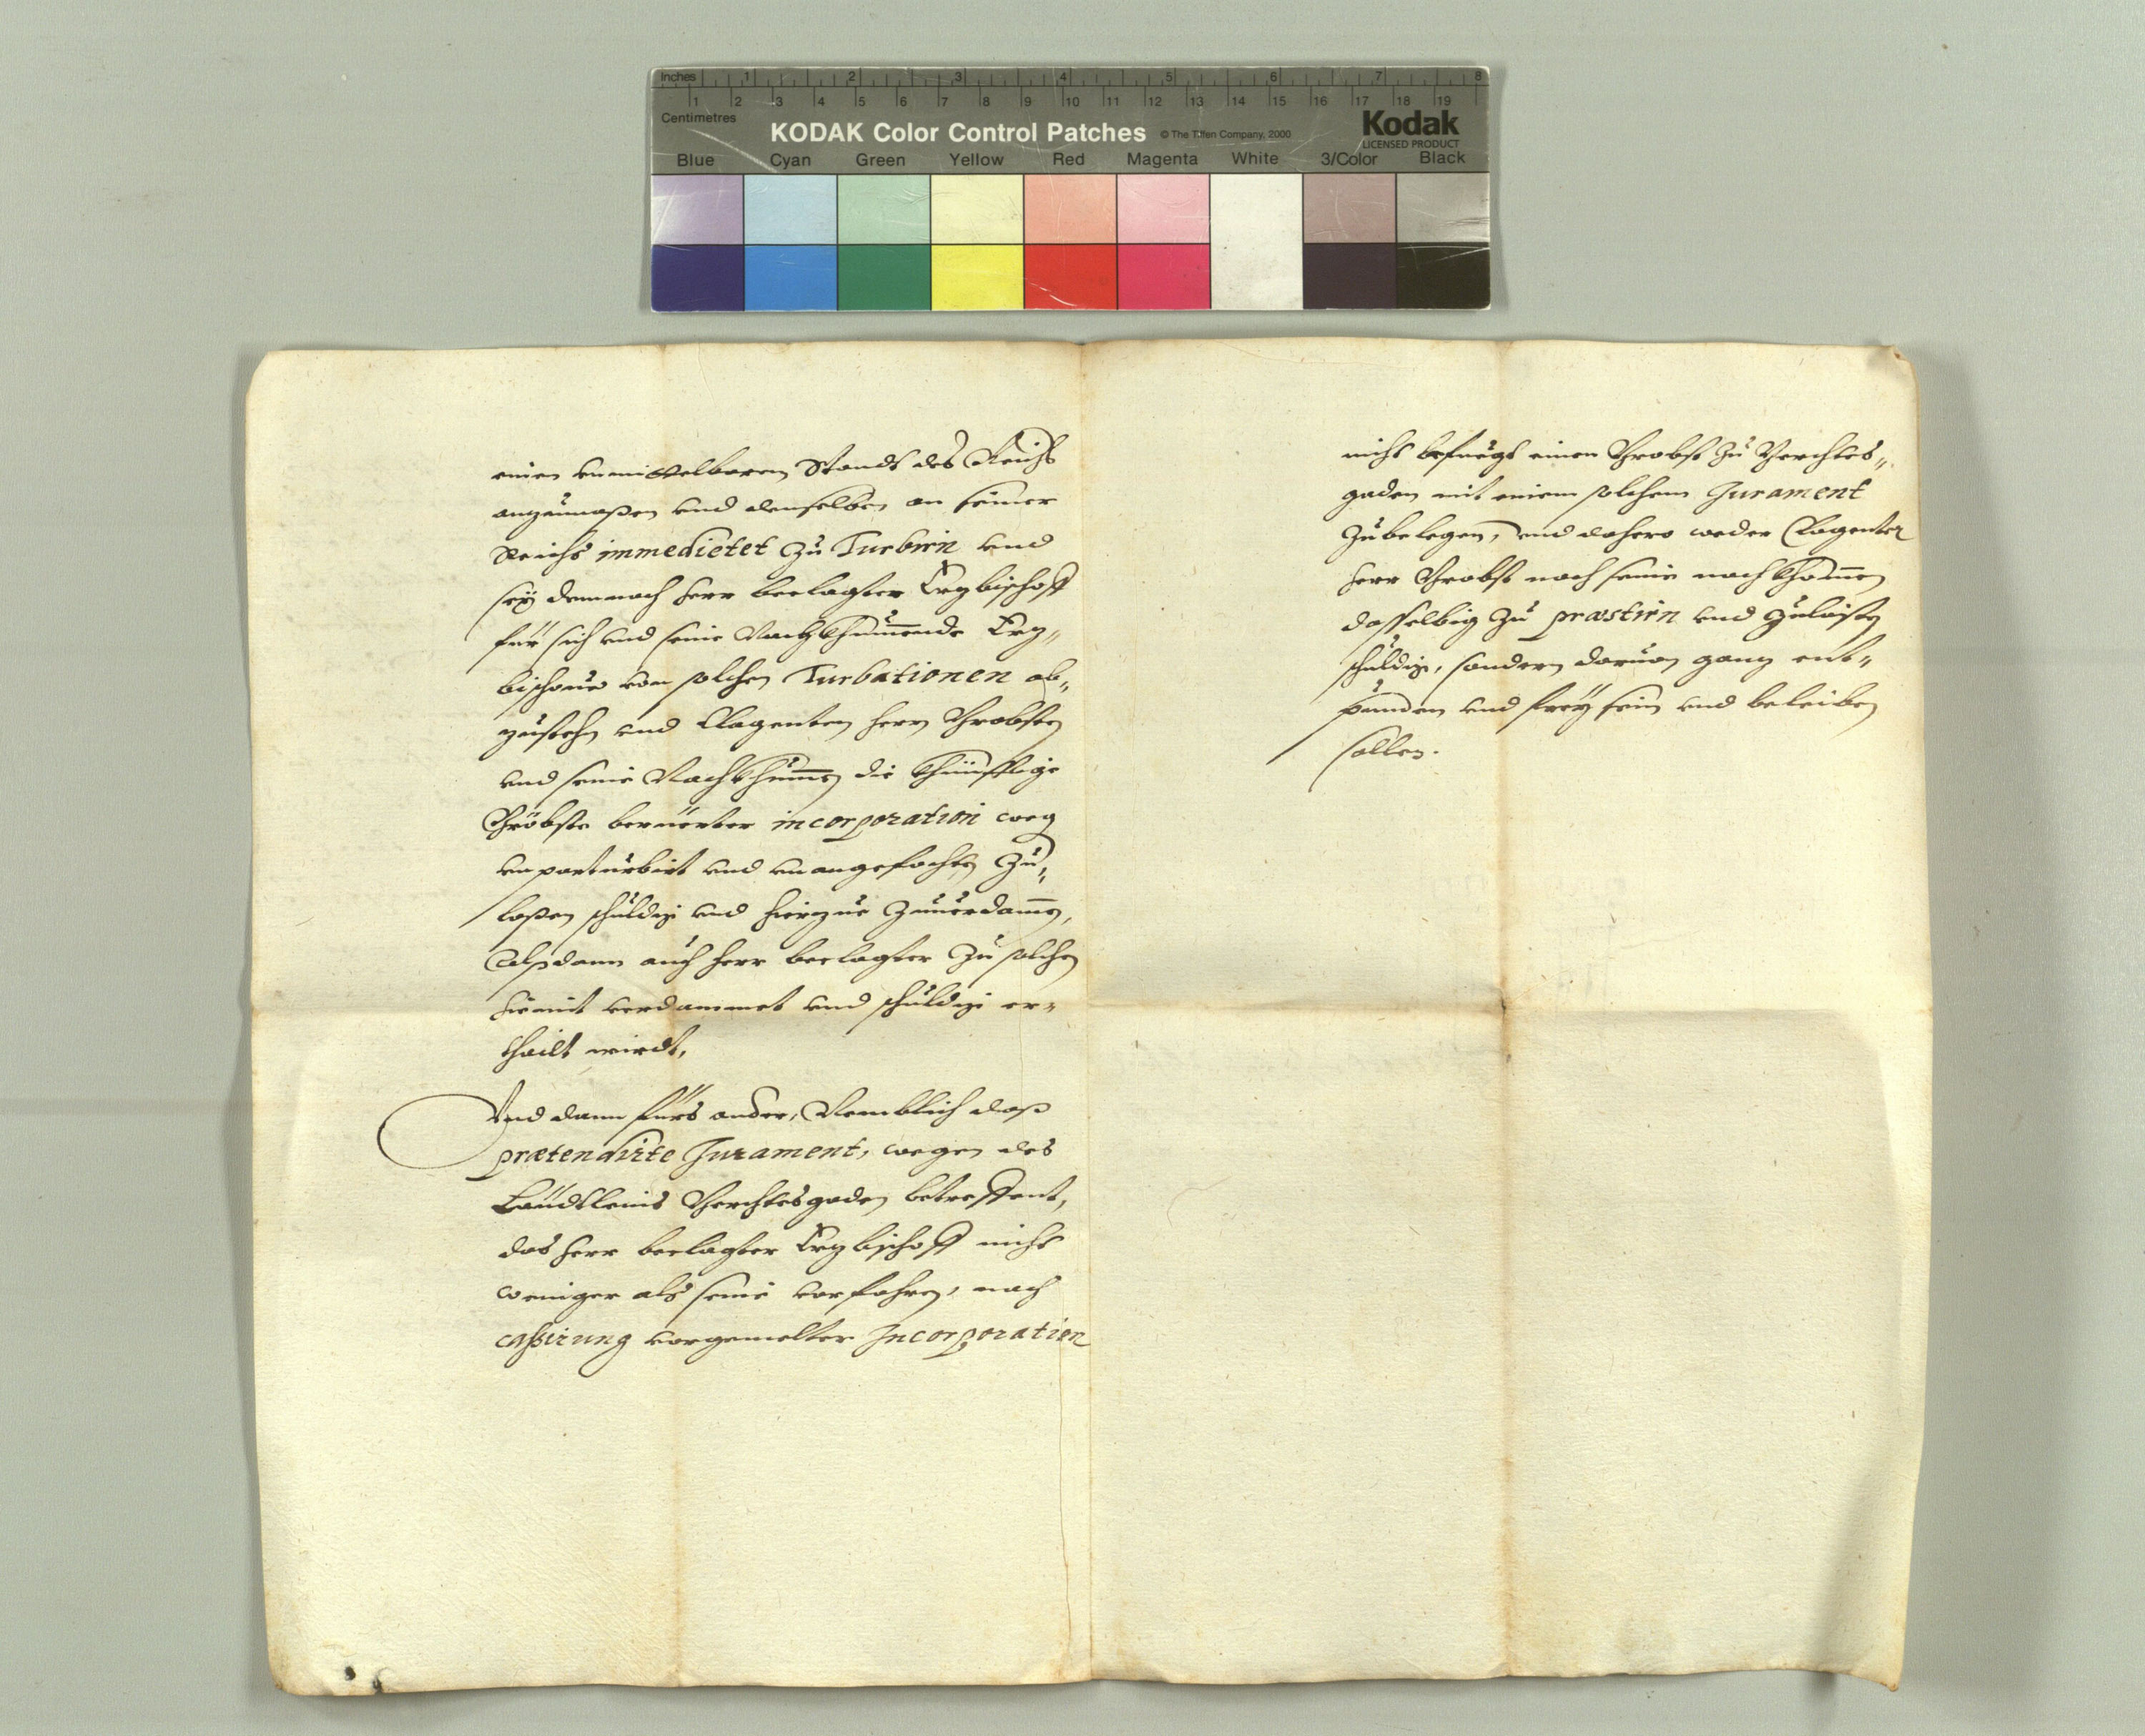 Inches 1 2 3 4 5 6 7 8
1 2 3 4 5 6 7 8 9 10 11 12 13 14 15 16 17 18 19
Centimetres
KODAK Color Control Patches © The Tiffen Company, 2000 Kodak
LICENSED PRODUCT
Blue Cyan Green Yellow Red Magenta White 3/Color Black
einen vnmittelbaren Standt des Reichs
anzumaßen vnd denselben an seiner
Reichs immedietet zu Turbirn vnd
seÿ demnach herr beclagter Erzbischoff
für sich vnd seine Nachkhummende Erz„
bischoue von solchen Turbationen ab„
zustehn vnd Clagenten herrn Probsten
vnd seine Nachkhummen die khünfftige
Pröbste berüerter incorporation weg
vnperturbirt vnd vnangefochten zu„
laßen schuldig vnd hierzue zuuerdammen,
Alßdann auch herr beclagter zu solchen
hiemit verdammet vnd schuldig er„
thailt wirdt,
Vnd dann fürs ander, Nemblich daß
prætendirte Jurament, wegen des
Ländtleins Berchtesgaden betreffent,
das herr beclagter Erzbischoff nicht
weniger als seine vorfahren, nach
caßirung vorgemelter Incorporation
nicht befuegt einen Probst zu Berchtes„
gaden mit einem solchem Jurament
zubelegen, vnd dahero weder Clagenter
herr Probst noch seine nachkhommen
dasselbig zu præstirn vnd zulaisten
schuldig, sondern daruon ganz ent„
punden vnd freÿ sein vnd beleiben
sollen.